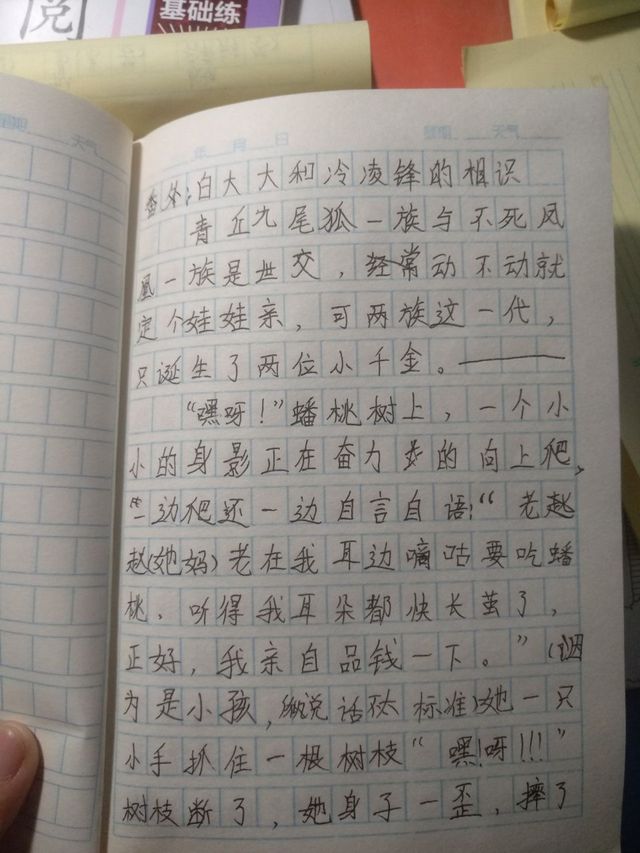 阅
基础练
星期 天气
年 月 日 星期 天气
番外:白大大和冷凌锋的相识
青丘九尾狐一族与不死凤
凰一族是世交，经常动不动就
定个娃娃亲，可两族这一代，
只诞生了两位小千金。——
“嘿呀！”蟠桃树上，一个小
小的身影正在奋力的向上爬，
一边爬还一边自言自语:“老赵
赵(她妈)老在我耳边嘀咕要吃蟠
桃，听得我耳朵都快长茧了，
正好，我亲自品钱一下。”(因
为是小孩，说话不太标准)她一只
小手抓住一根树枝“嘿!呀!!!”
树枝断了，她身子一歪，摔了